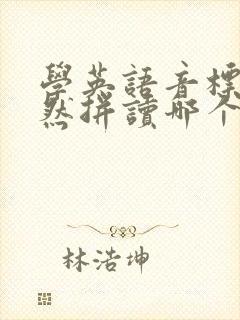 學英語音標
然拼讀哪个
林浩坤